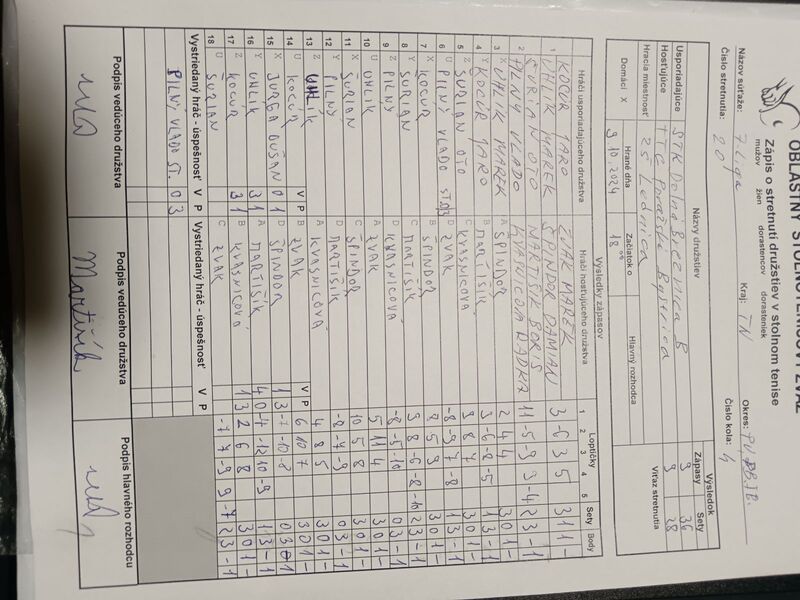 OBLASTNÝ STOLNOTENISOVÝ ZVÄZ
Zápis o stretnutí družstiev v stolnom tenise
mužov žien dorastencov dorasteniek
Názov súťaže: 7. liga Kraj: TN Okres:
Číslo stretnutia: 201 Číslo kola: 4
Názvy družstiev Výsledok
Zápasy Sety
Usporiadajúce STK Dolná Breznica B 9 36
Hosťujúce TTC Považská Bystrica 9 28
Hracia miestnosť ZŠ Lednica Víťaz stretnutia
Domáci X Hrané dňa Začiatok o Hlavný rozhodca
9.10.2024 18
Výsledky zápasov
Hráči usporiadajúceho družstva Hráči hosťujúceho družstva Loptičky Sety Body
1 2 3 4 5
1 KOCÚR JARO ŽVÁK MAREK 3 -6 3 5 3 1 1 -
UHLÍK MAREK ŠPINDOR DAMIAN
2 ŠURIAN OTO MARTIŠÍK BORIS 11 -5 -9 9 -4 2 3 - 1
PILNÝ VLADO KVASNICOVÁ RADKA
3 X UHLÍK MAREK A ŠPINDOR 2 4 4 3 0 1 -
4 Y KOCÚR JARO B MARTIŠÍK 3 -6 -8 -5 1 3 - 1
5 Z ŠURIAN OTO C KVASNICOVÁ 9 8 7 3 0 1 -
6 U PILNÝ VLADO ST. D ŽVÁK -8 -9 7 -8 1 3 - 1
7 X KOCÚR B ŠPINDOR 8 5 9 3 0 1 -
8 Y ŠURIAN C MARTIŠÍK 2 3 - 1
9 Z PILNÝ D KVASNICOVÁ -8 -5 -10 0 3 - 1
10 U UHLÍK A ŽVÁK 5 11 4 3 0 1 -
11 X ŠURIAN C ŠPINDOR 10 5 8 3 0 1 -
12 Y PILNÝ D MARTIŠÍK -8 -7 -9 0 3 - 1
13 Z UHLÍK A KVASNICOVÁ 4 8 5 3 0 1 -
14 U KOCÚR B ŽVÁK 6 10 7 3 0 1 -
V P V P
15 X JURGA DUŠAN 0 1 D ŠPINDOR 1 3 -7 -10 -8 0 3 0 1
16 Y UHLÍK 3 1 A MARTIŠÍK 4 0 -7 -12 10 -9 1 3 - 1
17 Z KOCÚR 3 1 B KVASNICOVÁ 1 3 2 6 8 3 0 1 -
18 U ŠURIAN C ŽVÁK -7 7 -9 9 -7 2 3 - 1
Vystriedaný hráč - úspešnosť V P Vystriedaný hráč - úspešnosť V P
PILNÝ VLADO ST. 0 3
Podpis vedúceho družstva Podpis vedúceho družstva Podpis hlavného rozhodcu
Martišík